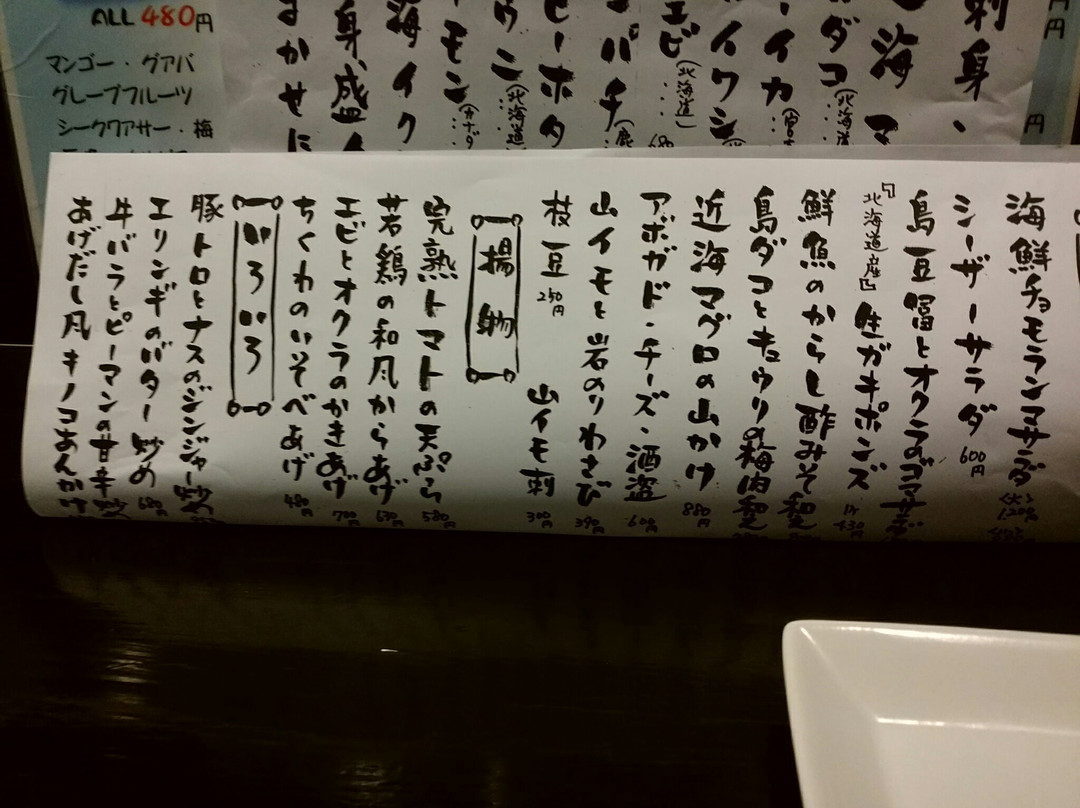 ALL 480円
マンゴー・グアバ
グレープフルーツ
シークワアサー・梅
刺身、
海マ
ダコ(北海道
ーイカ
イワシ
エビ(北海道) 680
パチ
ビーホタ
ウニ(北海道
モン(カナダ
海イク
身盛
まかせに
海鮮チョモランマサラダ <大> 1,200円
シーザーサラダ 600円
島豆腐とオクラのゴマサラダ
「北海道産」生ガキポンズ 1ケ 430円
鮮魚のからし酢みそ和え
島ダコとキュウリの梅肉和え
近海マグロの山かけ 880円
アボガド・チーズ・酒盗 600円
山イモと岩のりわさび 390円
枝豆 250円 山イモ刺 300円
揚物
完熟トマトの天ぷら 580円
若鶏の和風からあげ 630円
エビとオクラのかきあげ 700円
ちくわのいそべあげ 480円
いろいろ
豚トロとナスのジンジャー炒め
エリンギのバター炒め 680円
牛バラとピーマンの甘辛炒め
あげだし風キノコあんかけ